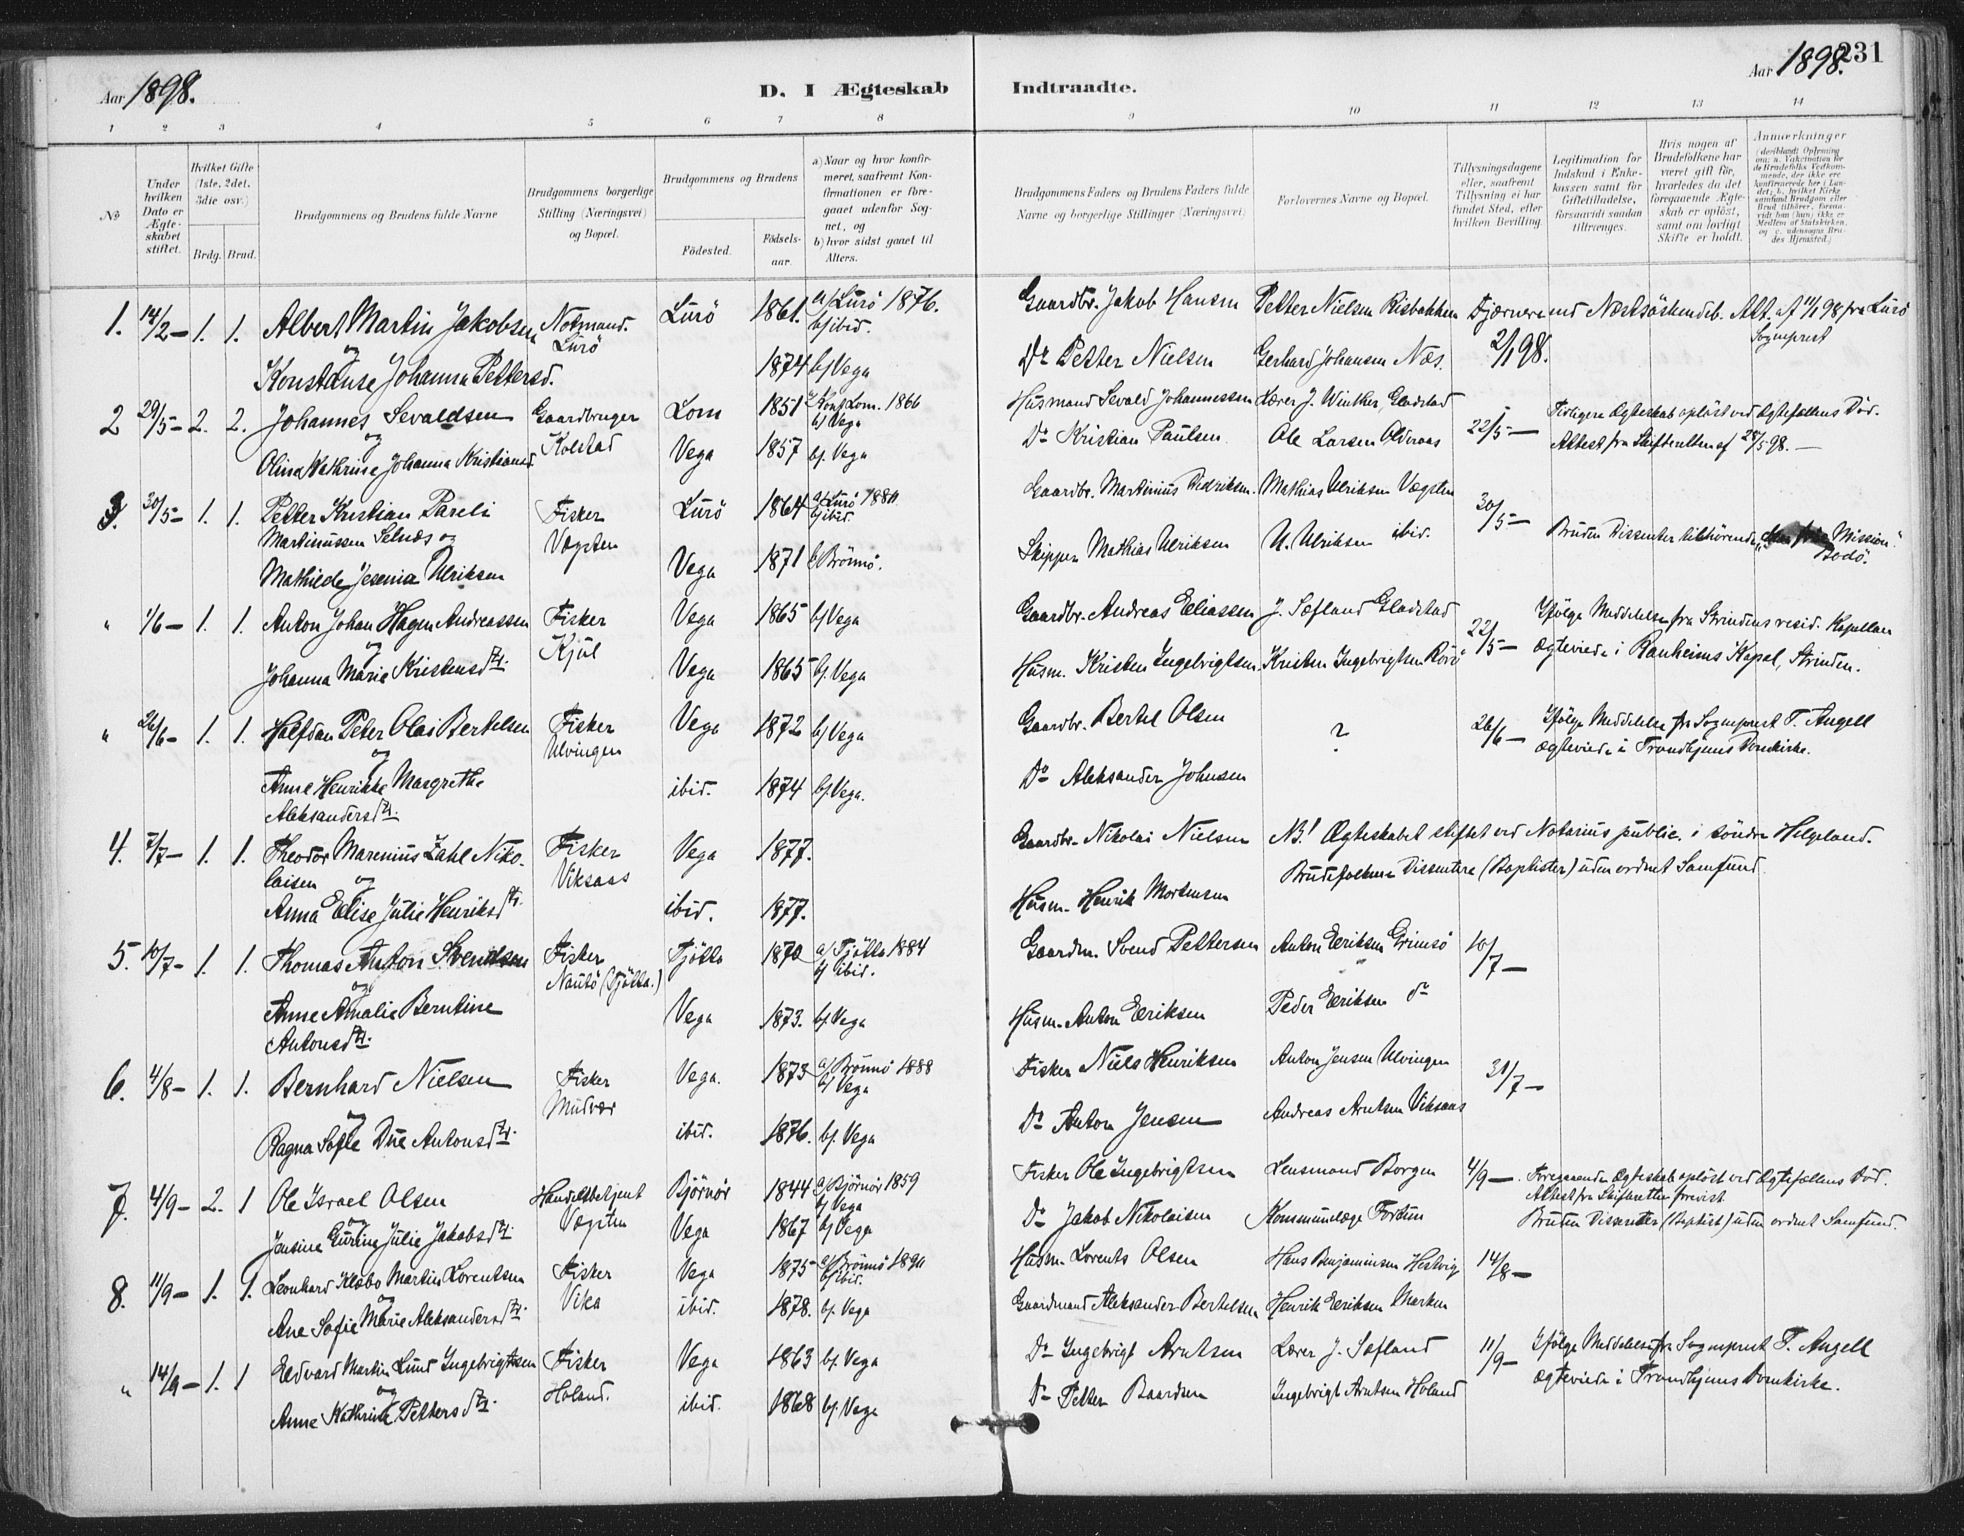 Aar 1898.
D. I Ægteskab Indtraadte.
Aar 1898. 231
1 2 3 4 5 6 7 8 9 10 11 12 13 14
No
Under hvilken Dato er Ægteskabet stiftet.
Hvilket Gifte (1ste, 2det, 3die osv.)
Brdg. Brud.
Brudgommens og Brudens fulde Navne
Brudgommens borgerlige Stilling (Næringsvei) og Bopæl.
Brudgommens og Brudens
Fødested. Fødselsaar.
a) Naar og hvor konfirmeret, saafremt Konfirmationen er foregaaet udenfor Sognet, og
b) hvor sidst gaaet til Alters.
Brudgommens Faders og Brudens Faders fulde Navne og borgerlige Stillinger (Næringsvei)
Forlovernes Navne og Bopæl.
Tillysningsdagene eller, saafremt Tillysning ei har fundet Sted, efter hvilken Bevilling.
Legitimation for Indskud i Enkekassen samt for Giftetilladelse, forsaavidt saadan tiltrænges.
Hvis nogen af Brudefolkene har været gift før, hvorledes da det foregaaende Ægteskab er opløst, samt om lovligt Skifte er holdt.
Anmerkninger
1. 14/2 – 1. 1. Albert Martin Jakobsen Notmand. Lurö Lurö 1861. a) Lurö 1876. b) ibid. Gaardbr. Jakob Hansen Petter Nielsen Risbakken Fjærnere end Næstsöskendeb. Att. af 11/1 98 fra Lurö Sogneprest
og
Konstanse Johanna Pettersd. 1874 b) Vega Do Petter Nielsen Gerhard Johansen Næs. 2/1 98.
2 29/5 – 2. 2. Johannes Sevaldsen Gaardbruger Lom 1851 Konf. Lom. 1866 b) Vega Husmand Sevald Johannessen Lærer J. Winther, Gladstad 22/5 – Tidligere Ægteskab oplöst ved Ægtefællens Död.
og Kolstad
Olina Kathrine Johanna Kristiansd. Vega 1857 b) Vega Do Kristian Paulsen Ole Larsen Alderaas Attest fra Skifteretten af 28/5 98. –
3. 30/5 – 1. 1. Petter Kristian Pareli Fisker Lurö 1864 a) Lurö 1880. b) ibid. Gaardbr. Martinius Didriksen. Mathias Ulriksen Vægsten 30/5 –
Martinussen Selnæs og Vægsten
Mathilde Jesenia Ulriksen Vega 1871 b) Brönnö. Skipper Mathias Ulriksen U. Ulriksen ibid. Bruden Dissenter tilhörende „den frie Mission“ Bodö.
" 1/6 – 1. 1. Anton Johan Hagen Andreassen Fisker Vega 1865 b) Vega Gaardbr. Andreas Eliassen J. Sæfland Gladstad 22/5 – Ifölge Meddelelse fra Strindens resid. Kapellan
og Kjul
Johanna Marie Kristensdtr. Vega 1865 b) Vega Husm. Kristen Ingebrigtsen Kristen Ingebrigtsen Rörö ægteviede i Ranheims Kapel, Strinden.
" 26/6 – 1. 1. Halfdan Peter Olai Bertelsen Fisker Vega 1872 b) Vega Gaardbr. Bertel Olsen ? 26/6 – Ifölge Meddelelse fra Sogneprest T. Angell
og Ulvingen ægteviede i Trondhjems Domkirke.
Anne Henrikke Margrethe ibid. 1874 b) Vega. Do Aleksander Johnsen
Aleksandersdtr.
4. 7/7 – 1. 1. Theodor Marenius Zahl Niko- Fisker Vega 1877. Gaardbr. Nikolai Nielsen NB! Ægteskabet stiftet ved Notarius public. i söndre Helgeland.
laisen og Viksaas Brudefolkene Dissentere (Baptister) uden ordnet Samfund.
Anna Elise Julie Henriksdtr. ibid. 1877. Husm. Henrik Mortensen
5. 10/7 – 1. 1. Thomas Anton Svendsen Fisker Tjötta 1870 a) Tjötta 1884 b) ibid. Gaardm. Svend Pettersen Anton Eriksen Grimsö 10/7 –
og Nautö (Tjötta.)
Anne Amalie Berntine Vega 1873. b) Vega Husm. Anton Eriksen Peder Eriksen do
Antonsdtr.
6. 4/8 – 1. 1. Bernhard Nielsen Fisker Vega. 1873 a) Brönnö 1888 b) Vega Fisker Niels Henriksen Anton Jensen Ulvingen 31/7 –
og Mudvær
Ragna Sofie Due Antonsdtr. ibid. 1876. b) Vega Do Anton Jensen Andreas Arntsen Viksaas
7. 4/9 – 2. 1 Ole Israel Olsen Handelsbetjent Björnör 1844 a) Björnör 1859 b) Vega Fisker Ole Ingebrigtsen Lensmand Borgen 4/9 – Foregaaende Ægteskab oplöst ved Ægtefællens Död. Attest fra Skifteretten forevist.
og Vægsten
Jensine Gurine Julie Jakobsdtr. Vega 1867 b) Vega Do Jakob Nikolaisen Kommunelæge Fortun Bruden Dissenter (Baptist) uden ordnet Samfund.
8. 11/9 – 1. 1. Leonhard Klæbo Martin Lorentsen Fisker Vega 1875 a) Brönnö 1890 b) ibid. Husm. Lorents Olsen Hans Benjaminsen Hestvig 14/8 –
og Vika
Ane Sofie Marie Aleksandersdtr. ibid. 1878. b) Vega Gaardmand Aleksander Bertelsen Henrik Eriksen Marken
" 14/9 – 1. 1 Edvard Martin Lund Ingebrigtsen Fisker Vega 1863 b) Vega Do Ingebrigt Arntsen Lærer J. Sæfland 11/9 – Ifölge Meddelelse fra Sogneprest T. Angell
og Holand.
Anne Kathrine Pettersdtr. ibid. 1868 b) Vega Do Petter Baardsen Ingebrigt Arntsen Holand ægteviede i Trondhjems Domkirke.